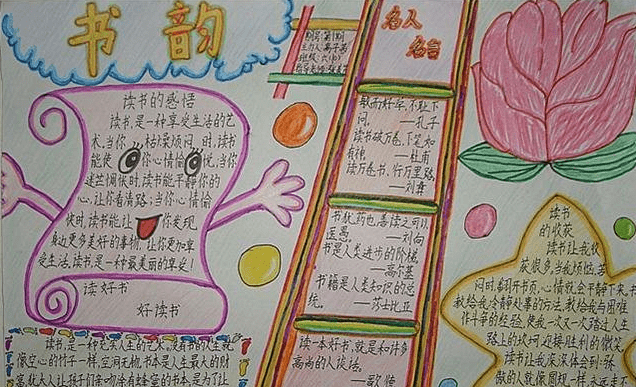 书韵
名人
名言
读书的感悟
读书,是一种享受生活的艺
术,当你枯燥烦闷时,读书
能使你心情愉悦,当你
迷茫惆怅时,读书能平静你的
心,让你看清路,当你心情愉
快时,读书能让你发现
身边更多美好的事物,让你更加享
受生活,读书,是一种最美丽的享受!
读好书
好读书
敏而好学,不耻下
问。——孔子
读书破万卷,下笔如
有神——杜甫
读万卷书,行万里路。
——刘彝
书犹药也,善读之可以
医愚。——刘向
书是人类进步的阶梯。
——高尔基
书籍是人类知识的总
统。——莎士比亚
读一本好书,就是和许多
高尚的人谈话。
——歌德
读书
的收获
读书让我收
获很多,当我烦恼,苦
闷时,翻开书页,心情就会平静下来,书
教给我冷静处事的方法,教给我与困难
作斗争的经验,使我一次又一次踏过人生
路上的坎坷,迎接胜利的微笑
读书让我深深体会到:张
读书,是一种充实人生的艺术,没有书的人生就
像空心的竹子一样,空洞无物,书本是人生最大的财